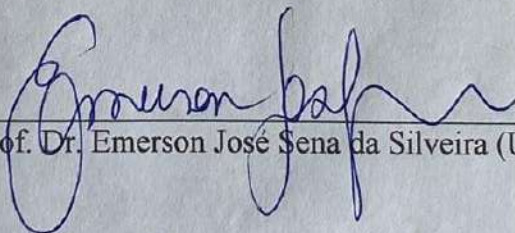 Emerson
of. Dr. Emerson José Sena da Silveira (U